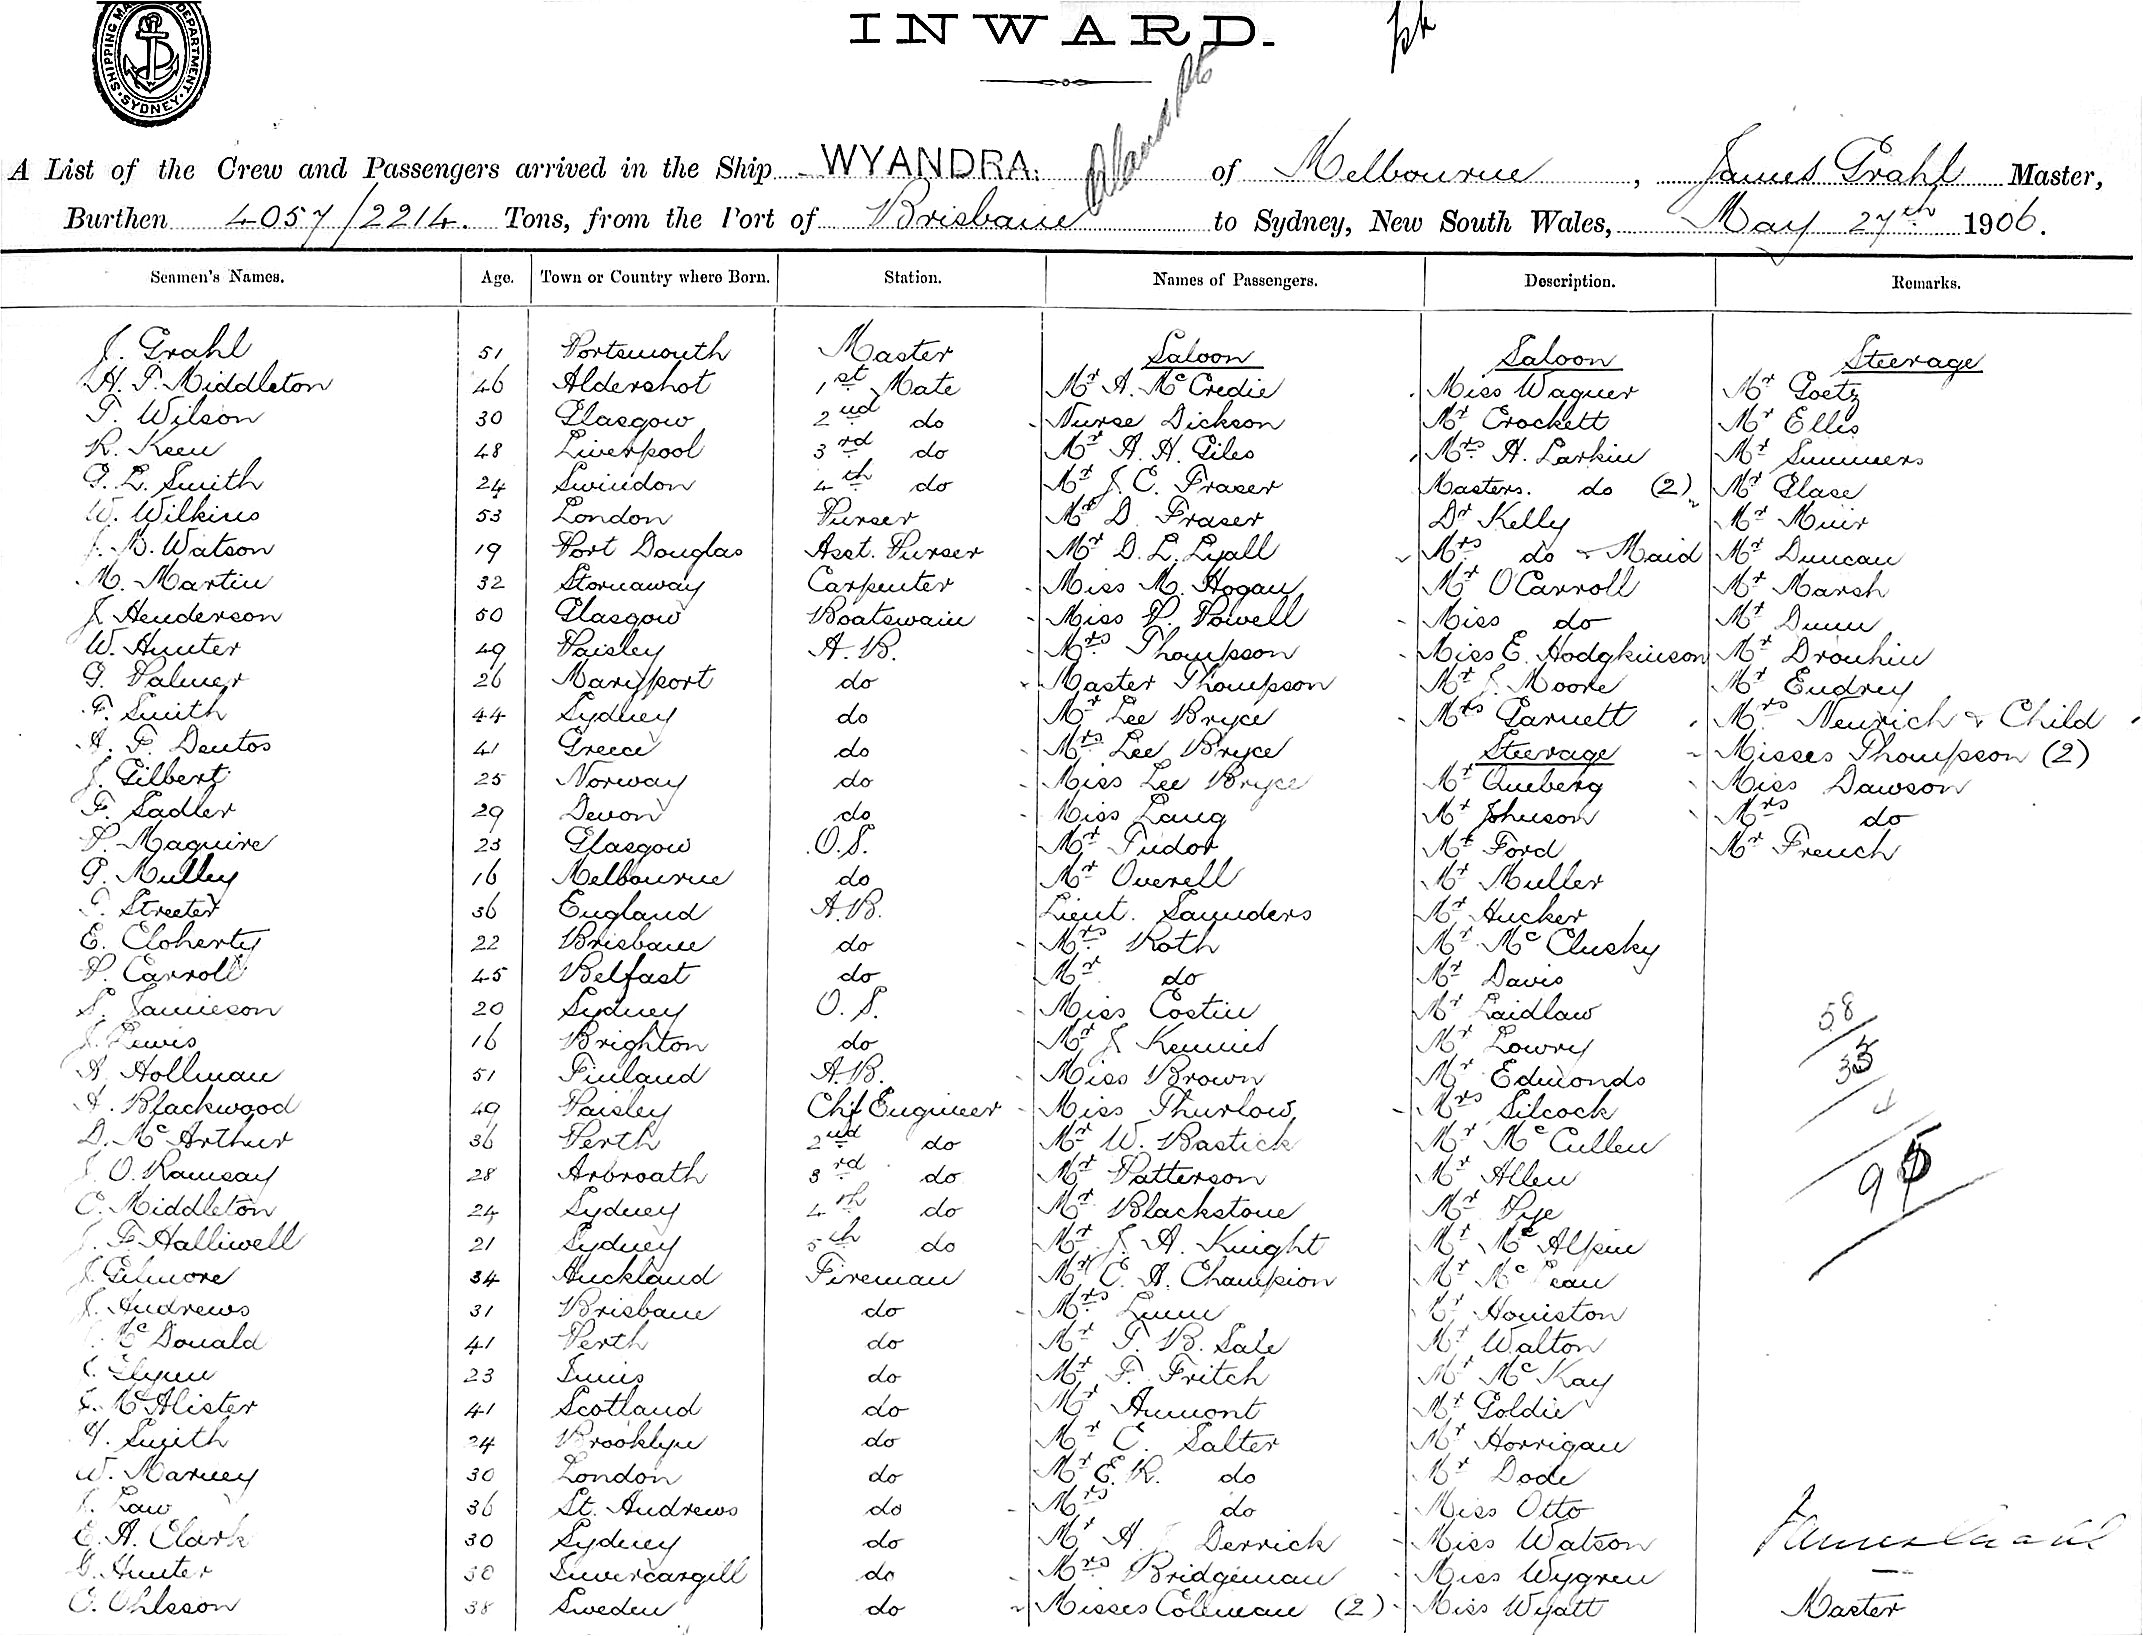 SHIPPING MA DEPARTMENT SYDNEY
INWARD.
A List of the Crew and Passengers arrived in the Ship WYANDRA. of Melbourne, James Grahl Master,
Burthen 4057/2214. Tons, from the Port of Brisbane to Sydney, New South Wales, May 27th 1906.
Seamen's Names. Age. Town or Country where Born. Station. Names of Passengers. Description. Remarks.
J. Grahl 51 Portsmouth Master Saloon Saloon Steerage
H. T. Middleton 46 Aldershot 1st Mate Mr A. McCredie Miss Wagner Mr Goetz
T. Wilson 30 Glasgow 2nd do Nurse Dickson Mr Crockett Mr Ellis
R. Keen 48 Liverpool 3rd do Mr A. H. Giles Mrs H. Larkin Mr Summers
G. L. Smith 24 Swindon 4th do Mr J. C. Fraser Masters. do (2) Mr Glase
W. Wilkins 53 London Purser Mr D. Fraser Dr Kelly Mr Muir
J. B. Watson 19 Port Douglas Asst. Purser Mr D. L. Lyall Mrs do & Maid Mr Duncan
M. Martin 32 Stornaway Carpenter Miss M. Hogan Mr O'Carroll Mr Marsh
J. Henderson 50 Glasgow Boatswain Miss P. Powell Miss do Mr Dunn
W. Hunter 49 Paisley A. B. Mrs Thompson Miss E. Hodgkinson Mr Drouhin
G. Palmer 26 Maryport do Master Thompson Mr J. Moore Mr Eudrey
F. Smith 44 Sydney do Mr Lee Bryce Mrs Garnett Mrs Neurich & Child
A. P. Dentos 41 Greece do Mrs Lee Bryce Steerage Misses Thompson (2)
J. Gilbert 25 Norway do Miss Lee Bryce Mr Queberg Miss Dawson
F. Sadler 29 Devon do Miss Lang Mr Johnson Mrs do
P. Maguire 23 Glasgow O. S. Mr Tudor Mr Ford Mr French
G. Mulley 16 Melbourne do Mr Overell Mr Muller
T. Streeter 36 England A. B. Lieut. Saunders Mr Hucker
E. Cloherty 22 Brisbane do Mrs Roth Mr McClusky
P. Carroll 45 Belfast do Mr do Mr Davis
S. Jamieson 20 Sydney O. S. Miss Costin Mr Laidlaw 58
J. Lewis 16 Brighton do Mr J. Mr Lowry
A. Hollman 51 Finland A. B. Miss Brown Mr Edmonds
A. Blackwood 49 Paisley Chf Engineer Miss Thurlow Mrs Silcock
D. McArthur 36 Perth 2nd do Mr W. Bastick Mr McCullen
J. O. Ramsay 28 Arbroath 3rd do Mr Patterson Mr Allen
C. Middleton 24 Sydney 4th do Mr Blackstone Mr Pye
J. F. Halliwell 21 Sydney 5th do Mr J. A. Knight Mr McAlpin
J. Gilmore 34 Auckland Fireman Mr C. A. Champion Mr
J. Andrews 31 Brisbane do Mrs Linn Mr Houiston
McDonald 41 Perth do Mr T. B. Sale Mr Walton
Glynn 23 do Mr F. Fritch Mr McKay
McAlister 41 Scotland do Mr Aumont Mr Goldie
Smith 24 Brooklyn do Mr C. Salter Mr Horrigan
W. Marney 30 London do Mr E. R. do Mr Dode
Law 36 St. Andrews do Mrs do Miss Otto
E. A. Clark 30 Sydney do Mr A. J. Derrick Miss Watson
G. Hunter 30 Invercargill do Mrs Bridgeman Miss Wygren
C. Ohlsson 38 Sweden do Misses Collman (2) Miss Wyatt Master